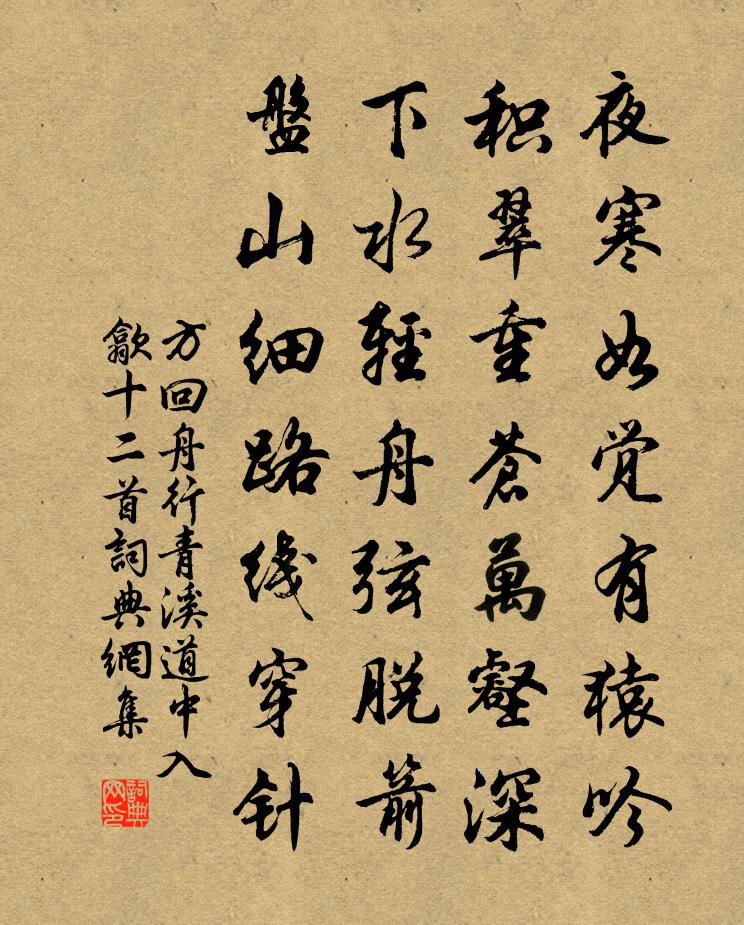 夜寒如觉有猿吟
积翠重苍萬壑深
下水輕舟弦脱箭
盤山细路线穿针
方回舟行青溪道中入
歙十二首詞典網集
詞典
网印